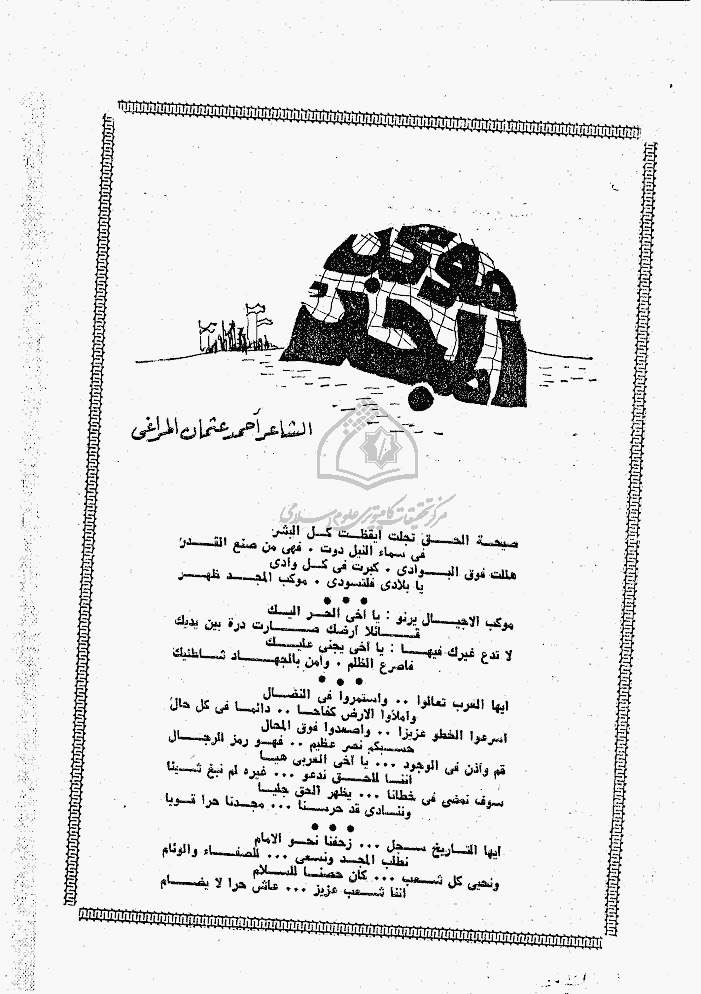 موكب
المجد
الشاعر أحمد عثمان المراغي
مركز تحقيقات كامپيوترى علوم اسلامى
صيحة الحق تجلت ايقظت كل البشر
فى سماء النيل دوت . فهى من صنع القدر
هللت فوق البوادى . كبرت فى كل وادى
يا بلادى فلتسودى . موكب المجد ظهر
موكب الاجيال يرنو : يا أخى الحر اليك
قائلا أرضك صارت درة بين يديك
لا تدع غيرك فيها : يا أخى يجنى عليك
فاصرع الظلم . وآمن بالجهاد شاطئيك
ايها العرب تعالوا .. واستمروا فى النضال
واملأوا الارض كفاحا .. دائما فى كل حال
اسرعوا الخطو عزيزا .. واصعدوا فوق المحال
حسبكم نصر عظيم .. فهو رمز الرجال
قم وأذن فى الوجود ... يا أخى العربى هيا
اننا للحق ندعو ... غيره لم نبغ شيئا
سوف نمضى فى خطانا ... يظهر الحق جليا
وننادى قد حرسنا ... مجدنا حرا قويا
ايها التاريخ سجل ... زحفنا نحو الامام
نطلب المجد ونسعى ... للصفاء والوئام
ونحيى كل شعب ... كان حصنا للسلام
اننا شعب عزيز ... عاش حرا لا يضام